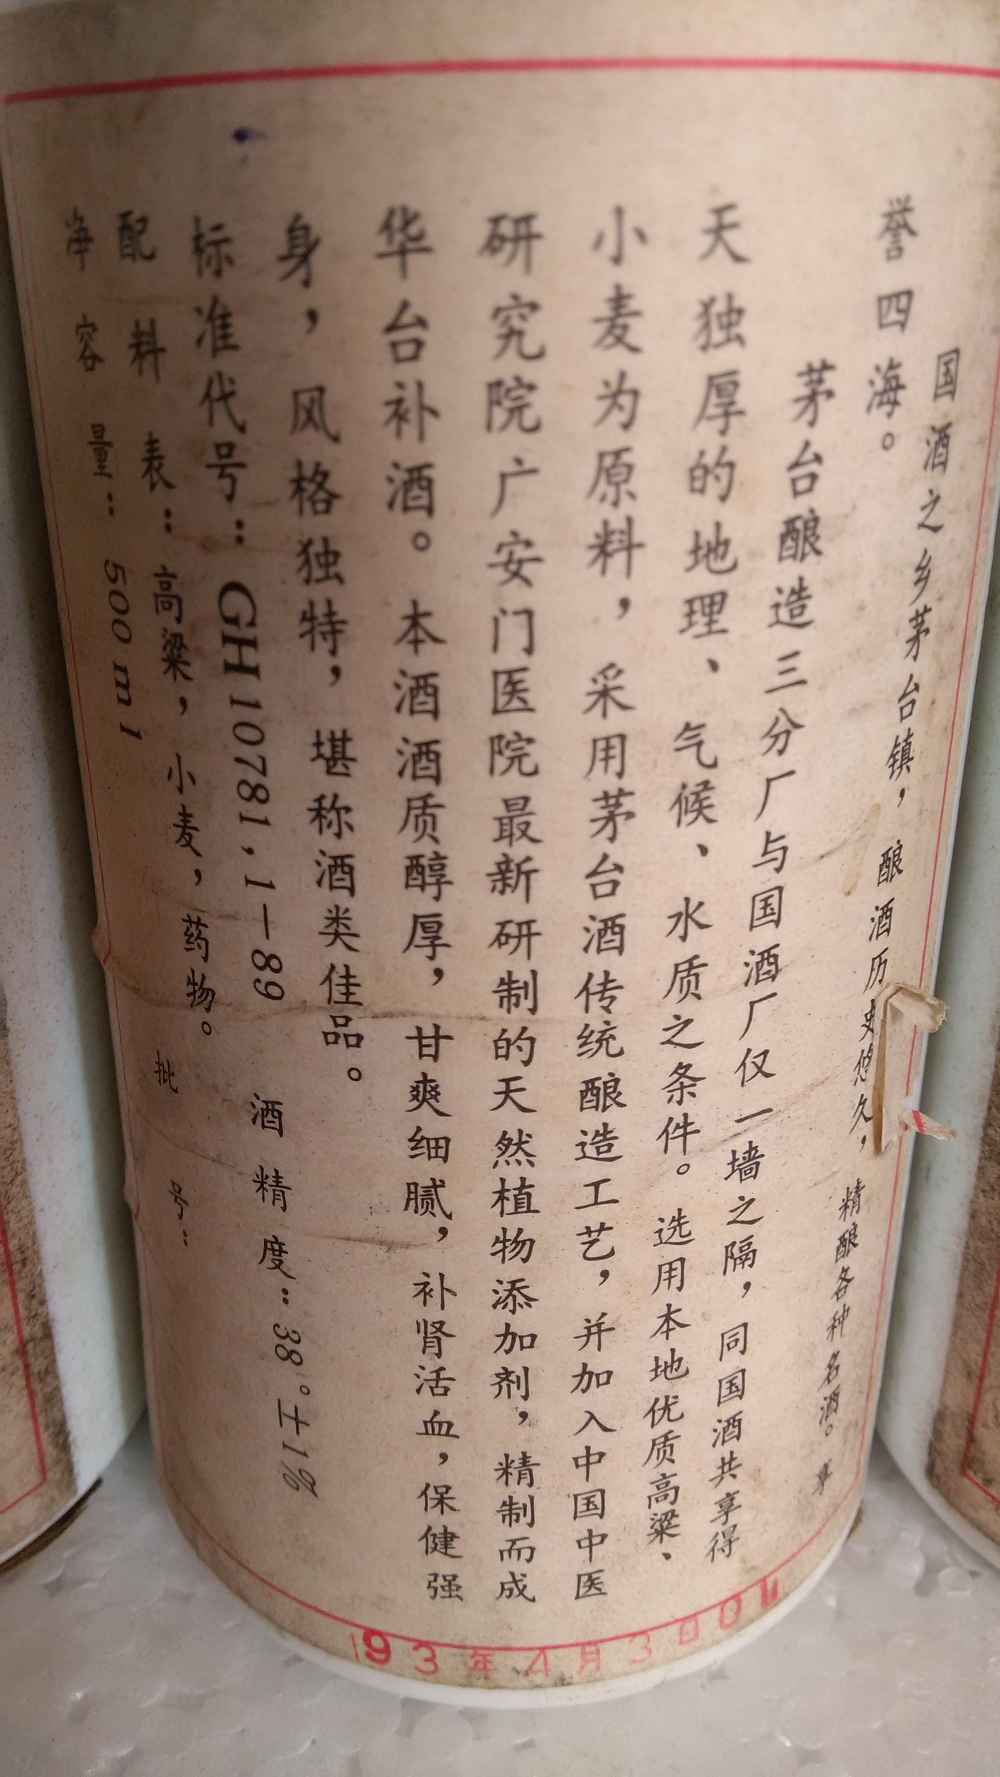 国酒之乡茅台镇，酿酒历史悠久，精酿各种名酒。享
誉四海。
茅台酿造三分厂与国酒厂仅一墙之隔，同国酒共享得
天独厚的地理、气候、水质之条件。选用本地优质高粱、
小麦为原料，采用茅台酒传统酿造工艺，并加入中国中医
研究院广安门医院最新研制的天然植物添加剂，精制而成
华台补酒。本酒酒质醇厚，甘爽细腻，补肾活血，保健强
身，风格独特，堪称酒类佳品。
标准代号：GH10781.1—89 酒精度：38°±1%
配料表：高粱，小麦，药物。
净容量：500ml 批号：
1993年4月3日